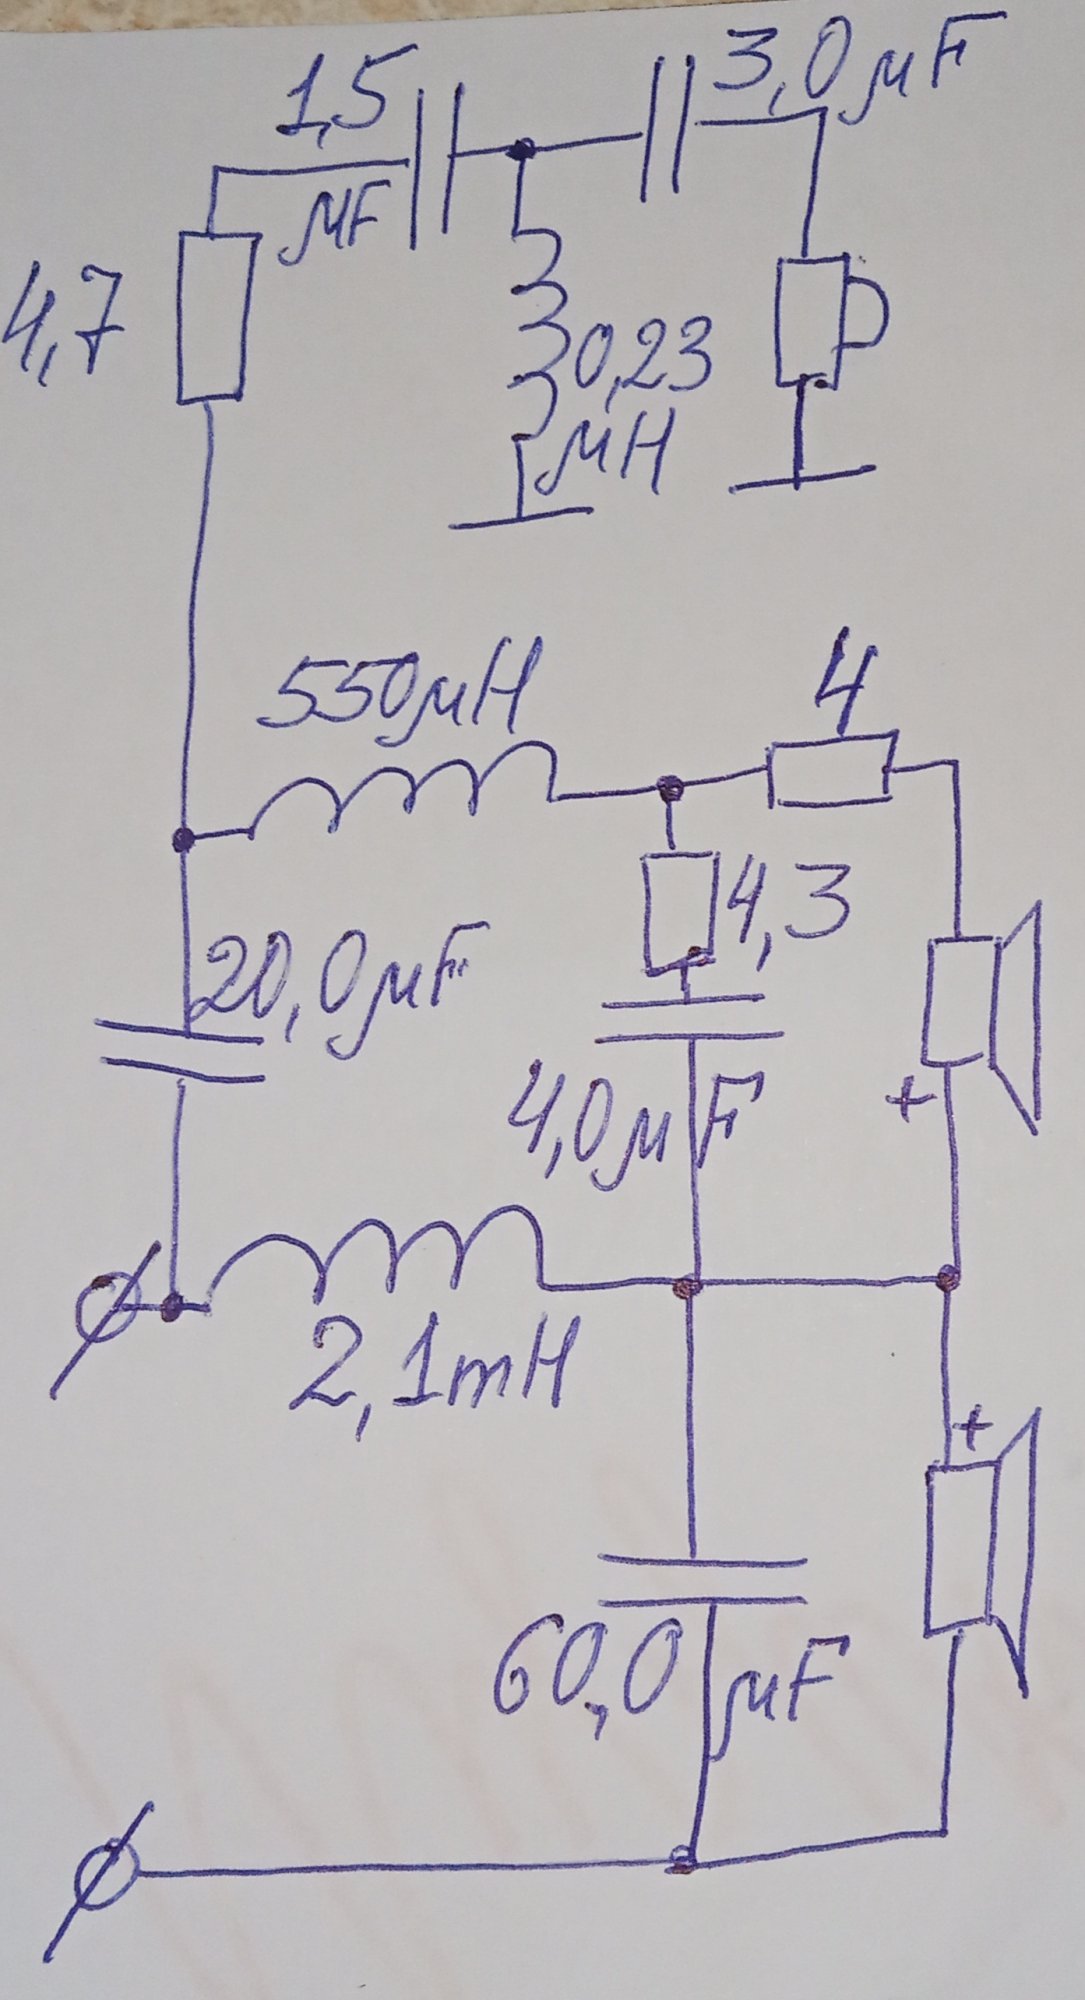 1,5
μF
3,0μF
4,7
0,23
μH
550μH
4
4,3
20,0μF
4,0μF
+
2,1mH
+
60,0μF